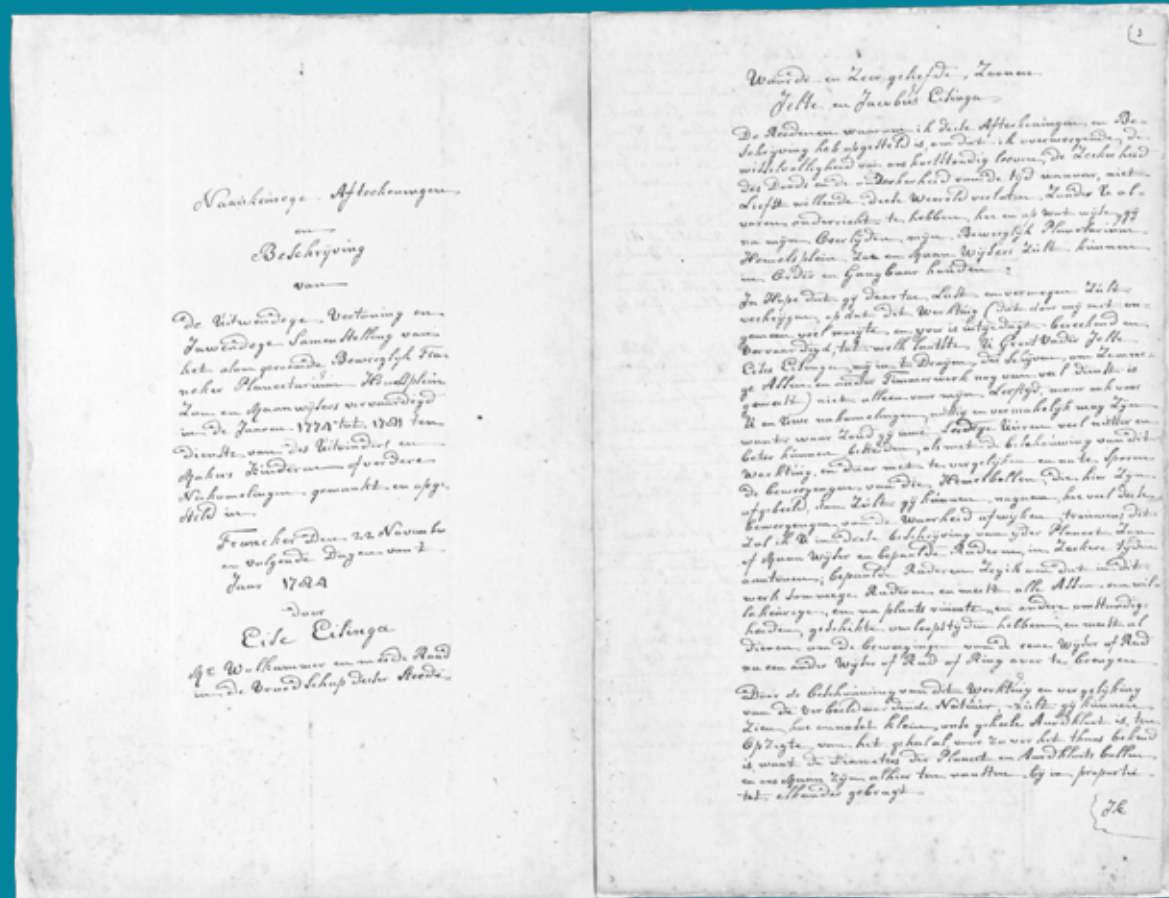 Naaukeurege Aftekeningen
en
Beschrijving
van
De Uitwendege Vertoning en
Inwendege Samenstelling van
het alom geroemde Beweeglyk Fra-
neker Planetarium Hemelsplein
Zon en Maanwyzers vervaardigd
in de Jaaren 1774 tot 1781 ten
dienste van des Uitvinders en
Makers Kinderen of verdere
Nakomelingen gemaakt en opge-
steld in
Franeker Den 22 November
en volgende Dagen van 't
Jaar 1784
door
Eise Eisinga
Mr Wolkammer en meede Raad
in de Vroedschap deeser Steede
Waarde en Zeer geliefde Zoonen
Jelte en Jacobus Eisinga
De Reedenen waarom ik deese Aftekeningen en Be-
schrijving heb opgesteld is, om dat ik overweegende de
wisselvalligheid van ons kortstondig leeven, de Zeekerheid
des Doods en de onzekerheid van de tyd wanneer, niet
Liefst willende deese Waereld verlaten, Zonder U al-
voren onderricht te hebben, hoe en op wat wyse, gy
na myn Overlyden, myn Beweeglyk Planetarium
Hemelsplein Zon en Maan Wysers Zult kunnen
in Order en Gangbaar houden
In Hope dat gy daar toe Lust en vermogen Zult
verkrygen, op dat dit Werktuig (dat door my met on-
gemeen veel moeyte en yver is uitgedagt berekend en
vervaardigd, tot welk laatste U Groot Vader Jelte
Eises Eisinga, my in te Drayen, der schyven, en Zomme-
ge Assen en ander Timmerwerk nog van veel dienst is
geweest) niet alleen voor myn Leeftyd, maar ook voor
U en Uwe nakomelingen, nuttig en vermakelyk mag Zyn
want waar Zoud gy uwe Leedege Uiren veel nutter en
beter kunnen besteeden, als met de beschouwing van dit
Werktuig, en daar met te vergelyken en na te sporen
de beweegingen van die Hemelbollen, die hier Zyn
afgebeeld, dan Zult gy kunnen nagaan, hoe veel deese
beweegingen van de Waarheid afwyken, trouwens dit
Zal ik U in deese beschryving van yder Planeet Zon
of Maan Wyser en bepaalde Raderen, in Zeekere tyden
aantonen; bepaalde Raderen Zeg ik om dat in dit
werk sommege Raderen en meest alle Assen een wil-
lekeurege, en na plaats ruimte, en andere omstandig-
heeden, geschikte omloopstyden hebben, en meest al
dienen, om de beweegingen van de eene Wyser of Rad
na een ander Wyser of Rad of Ring over te brengen
Door de beschouwing van dit Werktuig en vergelyking
van de verbeeld werdende Natuur zult gy kunnen
Zien, hoe onnoosel klein, onse geheele Aardkloot is, ten
Opzigte van het geheelal, voor zo ver het thans bekend
is, want de Diameters der Planeet en Aardkloots bollen
en ons Maan Zyn alhier ten naasten by in proportie
tot elkander gebragt